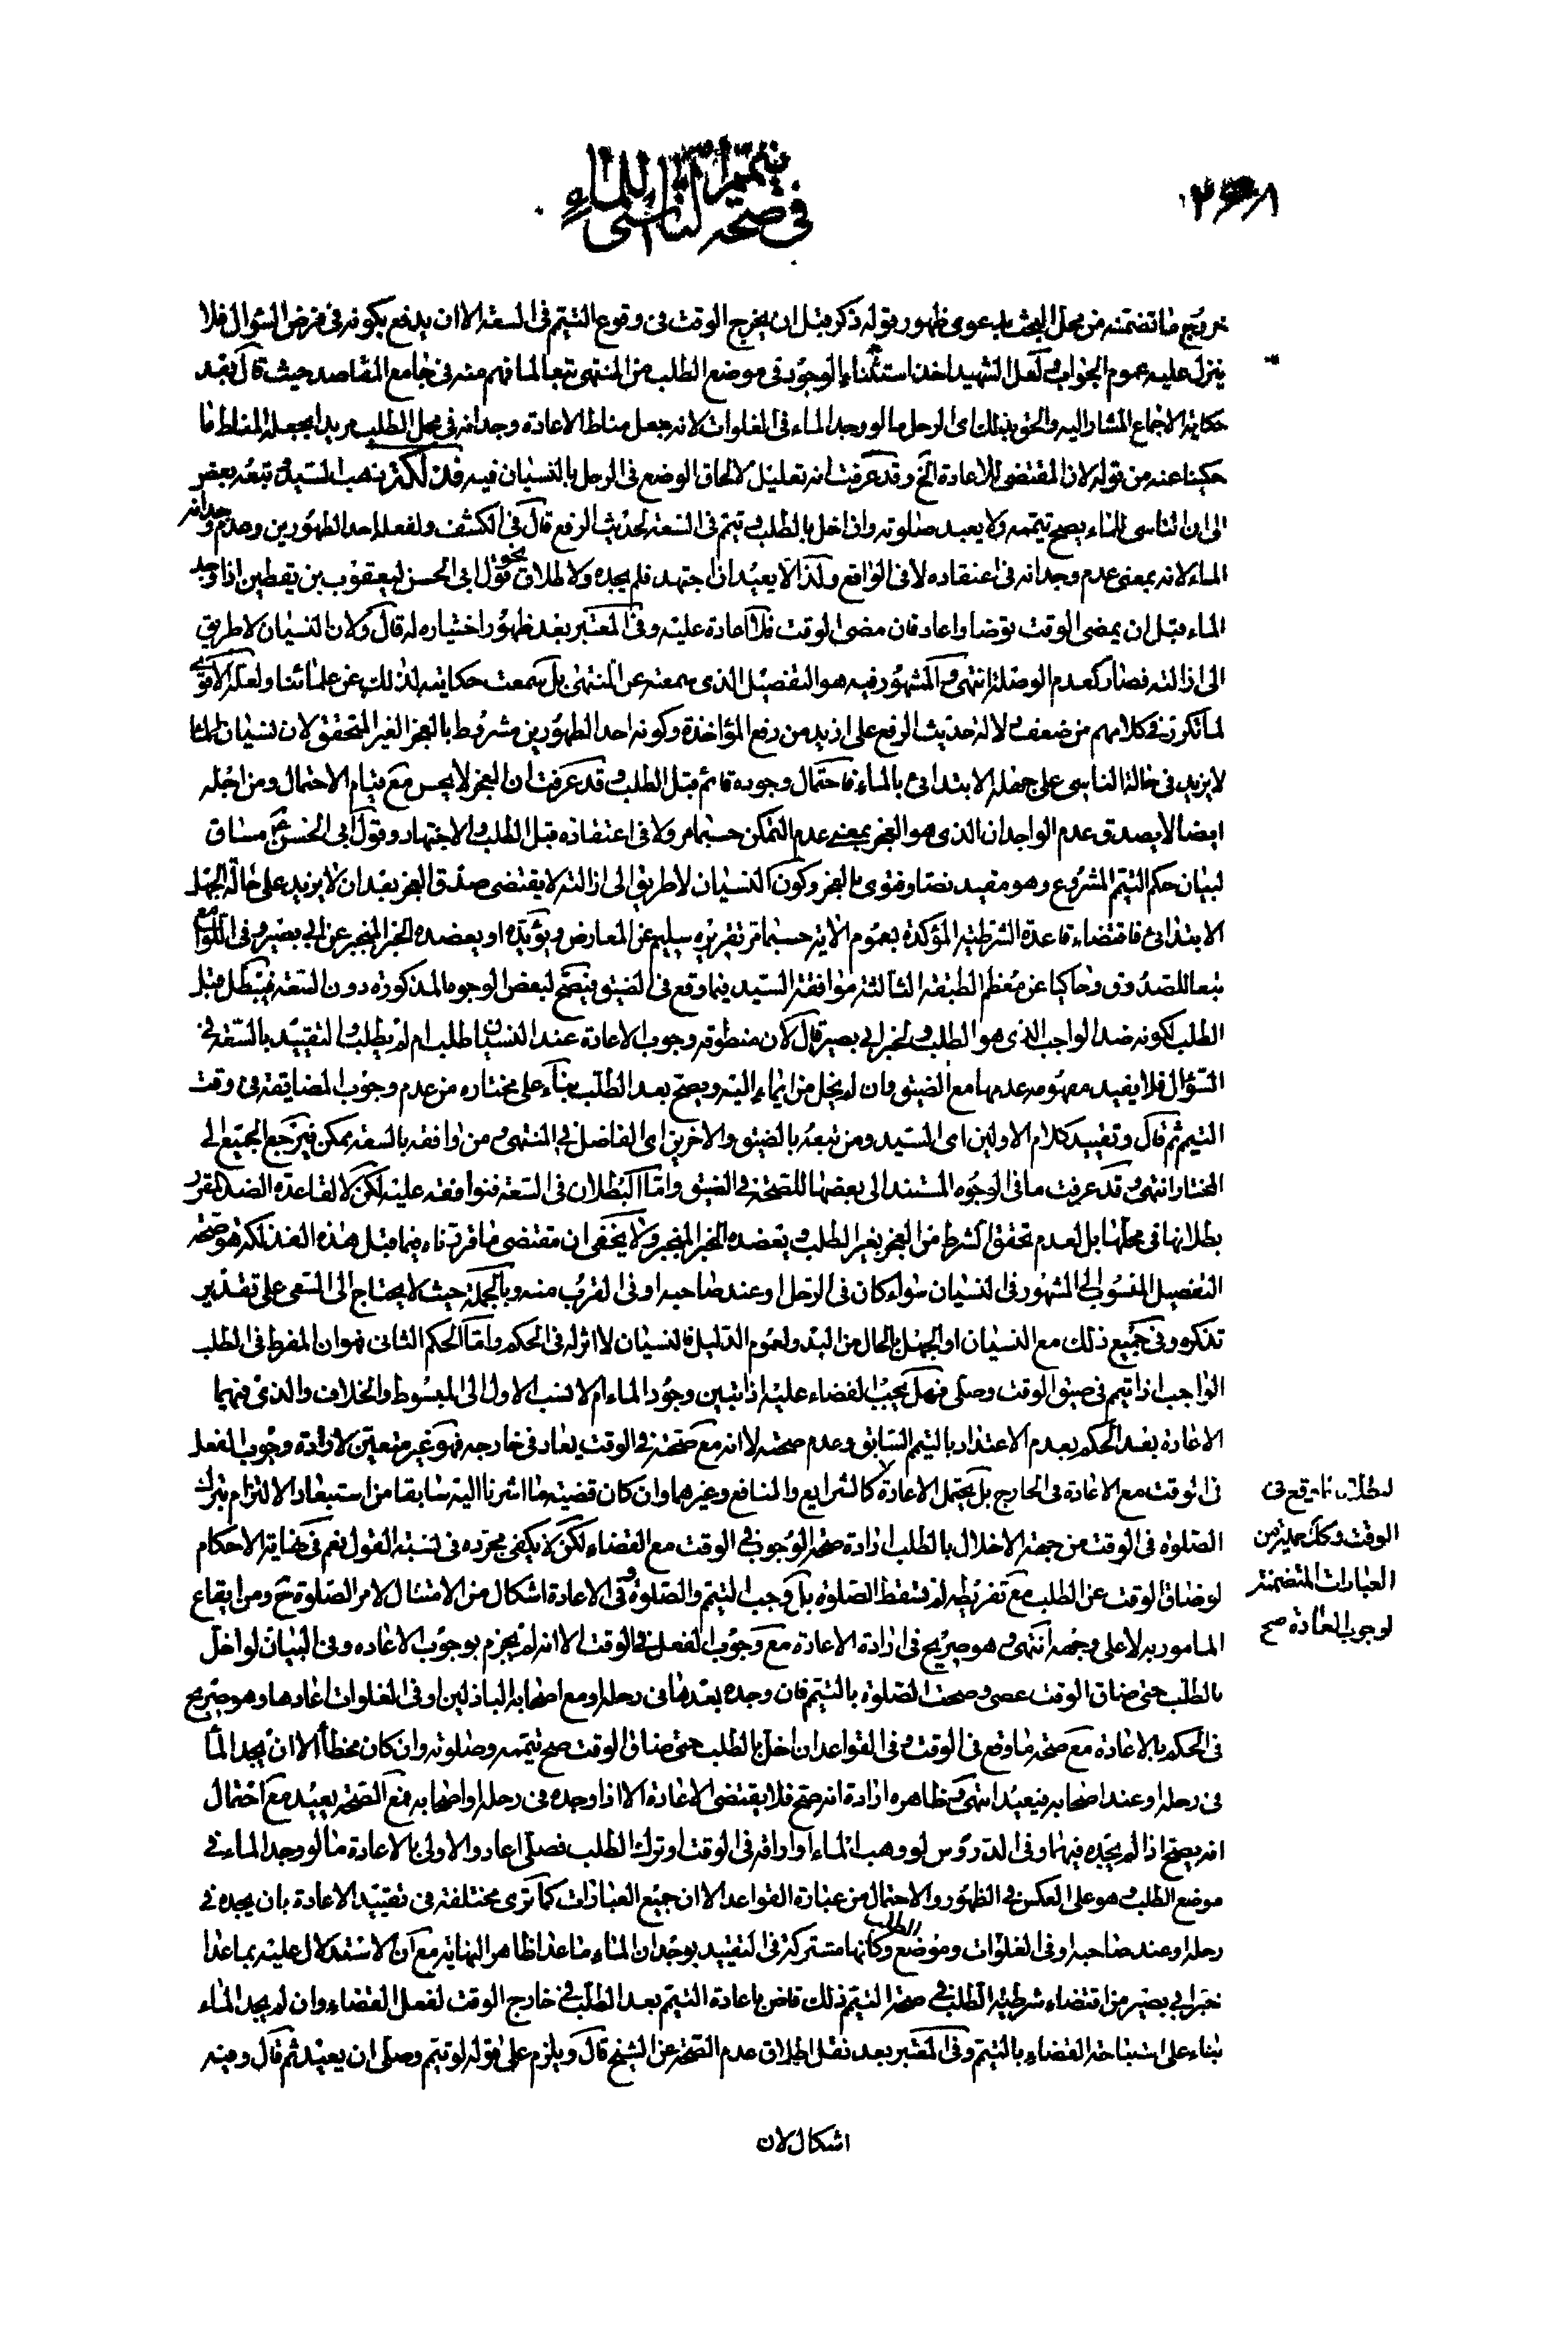 في صحة تيمم الناسي للماء
خروج ما تضمنه من محل البحث بل دعوى ظهور قوله ذكر قبل ان يخرج الوقت في وقوع التيمم في السعة الا ان يدفع بكونه في فرض السؤال فلا
ينزل عليه عموم الجواب ولعل الشهيد اخذ استثناء الوجود في موضع الطلب من المنتهى تبعا لما فهم منه في جامع المقاصد حيث قال بعد
حكاية الاجماع المشار اليه والحق بذلك اى الرحل ما لو وجد الماء في الغلوات لانه جعل مناط الاعادة وجدانه في محل الطلب مريدا بجعله المناط ما
حكينا عنه من قوله لان المقتضى للاعادة الخ وقد عرفت انه تعليل لالحاق الوضع في الرحل بالنسيان فيه فذلكة ذهب السيد وتبعه بعض
الى ان الناسى للماء يصح تيممه ولا يعيد صلوته واذا خل بالطلب وتيمم في السعة لحديث الرفع قال في الكشف ولفعله احد الطهورين وعدم وجدانه
الماء لانه بمعنى عدم وجدانه في اعتقاده لا في الواقع ولذا لا يعيد اذا اجتهد فلم يجده ولاطلاق نحو قول ابى الحسن ليعقوب بن يقطين اذا وجد
الماء قبل ان يمضى الوقت توضا واعاد فان مضى الوقت فلا اعادة عليه وفي المعتبر بعد ظهور اختياره له قال ولان النسيان لا طريق
الى ازالته فصار كعدم الوصلة انتهى والمشهور فيه هو التفصيل الذى سمعته عن المنتهى بل سمعت حكايته لذلك عن علمائنا ولعله الاقوى
لما تكرر في كلامهم من ضعف دلالة حديث الرفع على ازيد من رفع المؤاخذة وكونه احد الطهورين مشروط بالعجز الغير المتحقق لان نسيان الماء
لا يزيد في حالة الناسى على جهله الابتدائى بالماء فاحتمال وجوده قائم قبل الطلب وقد عرفت ان العجز لا يحس مع قيام الاحتمال ومن اجله
ايضا لا يصدق عدم الواجدان الذى هو العجز بمعنى عدم التمكن حسبما مر ولا في اعتقاده قبل الطلب والاجتهاد وقول ابى الحسن ع مساق
لبيان حكم التيمم المشروع وهو مقيد نصا وفتوى بالعجز وكون النسيان لا طريق الى ازالته لا يقتضى صدق العجز بعد ان لا يزيد على حالة الجهل
الابتدائى فاقتضاء قاعدة الشرطية المؤكدة بعموم الاية حسبما مر تقريره سليم عن المعارض ويؤيده او يعضده الخبر المنجبر عن ابى بصير وفي اللوامع
تبعا للصدوق وحاكيا عن معظم الطبقة الثالثة موافقة السيد فيما وقع في الضيق فيصح لبعض الوجوه المذكورة دون السعة فيبطل قبل
الطلب لكونه ضد الواجب الذى هو الطلب ولخبر ابى بصير قال لان منطوقه وجوب الاعادة عند النسيان طلب ام لم يطلب والتقييد بالسعة في
السؤال فلا يفيد مفهومه عدمها مع الضيق وان لم يخل من ايماء اليه ويصح بعد الطلب بناء على مختاره من عدم وجوب المضايقة في وقت
التيمم ثم قال وتقييد كلام الاولين اى السيد ومن تبعه بالضيق والاخرين اى الفاضل في المنتهى ومن وافقه بالسعة ممكن فيرجع الجميع الى
المختار انتهى وقد عرفت ما في الوجوه المستند الى بعضها للصحة في الضيق واما البطلان في السعة فنوافقه عليه لكن لا لقاعدة الضد المقرر
بطلانها في محلها بل لعدم تحقق الشرط من العجز بغير الطلب ويعضده الخبر المنجبر ولا يخفى ان مقتضى ما قررناه فيما قبل هذه الفذلكة هو صحة
التفصيل المنسوب الى المشهور في النسيان سواء كان في الرحل او عند صاحبه او في القرب منه وبالجملة حيث لا يحتاج الى السعى على تقدير
تذكره وفي جميع ذلك مع النسيان او الجهل بالحال من البدو لعموم الدليل فالنسيان لا اثر له في الحكم واما الحكم الثانى فهو ان المفرط في الطلب
الواجب اذا تيمم في ضيق الوقت وصلى فهل يجب القضاء عليه اذا تبين وجود الماء ام لا نسب الاول الى المبسوط والخلاف والذى فيهما
الاعادة بعد الحكم بعدم الاعتداد بالتيمم السابق وعدم صحته لا انه مع صحته في الوقت يعاد في خارجه فهو غير متعين لارادة وجوب الفعل
في الوقت مع الاعادة في الخارج بل يحتمل الاعادة لا كالشرايع والمنافع وغيرهما وان كان قضية ما اشرنا اليه سابقا من استبعاد الالتزام بترك
الصلوة في الوقت من جهة الاخلال بالطلب ارادة صحة الوجوب في الوقت مع القضاء لكن لا يكفى مجرده في نسبة القول نعم في نهاية الاحكام
لو ضاق الوقت عن الطلب مع تفريطه لم تسقط الصلوة بل وجب التيمم والصلوة وفي الاعادة اشكال من الامتثال لامر الصلوة ح ومن ايقاع
المامور به لا على وجهه انتهى وهو صريح في ارادة الاعادة مع وجوب الفعل في الوقت الا انه لم يجزم بوجوب الاعاده وفي البيان لو اخل
بالطلب حتى ضاق الوقت عصى وصحت الصلوة بالتيمم فان وجده بعدها في رحله او مع اصحابه الباذلين او في الغلوات اعادها وهو صريح
في الحكم بالاعادة مع صحة ما وقع في الوقت وفي القواعد ان اخل بالطلب حتى ضاق الوقت صح تيممه وصلوته وان كان مخطأ الا ان يجد الماء
في رحله او عند اصحابه فيعيد انتهى وظاهره ارادة انه صح فلا يقتضى الاعادة الا اذا وجده في رحله او اصحابه فمع الصحة يعيد مع احتمال
انه يصح اذا لم يجده فيهما وفي الدروس لو وهب الماء او اراقه في الوقت او ترك الطلب فصلى اعاد والاولى بالاعادة ما لو وجد الماء في
موضع الطلب وهو على العكس في الظهور والاحتمال من عبارة القواعد الا ان جميع العبارات كما ترى مختلفة في تقييد الاعادة بان يجده في
رحله او عند صاحبه او في الغلوات وموضع الطلب وكانها مشتركة في التقييد بوجدان الماء ما عدا ظاهر النهاية مع ان الاستدلال عليه بما عدا
خبر ابى بصير من اقتضاء شرطية الطلب في صحة التيمم ذلك قاض باعادة التيمم بعد الطلب في خارج الوقت لفعل القضاء وان لم يجد الماء
بناء على استباحة القضاء بالتيمم وفي المعتبر بعد نقل اطلاق عدم الصحة عن الشيخ قال ويلزم على قوله لو تيمم وصلى ان يعيد ثم قال وفيه
اشكال لان
الوقت وكك جملة من
العبارات المتضمنة
لوجوب الاعادة صح